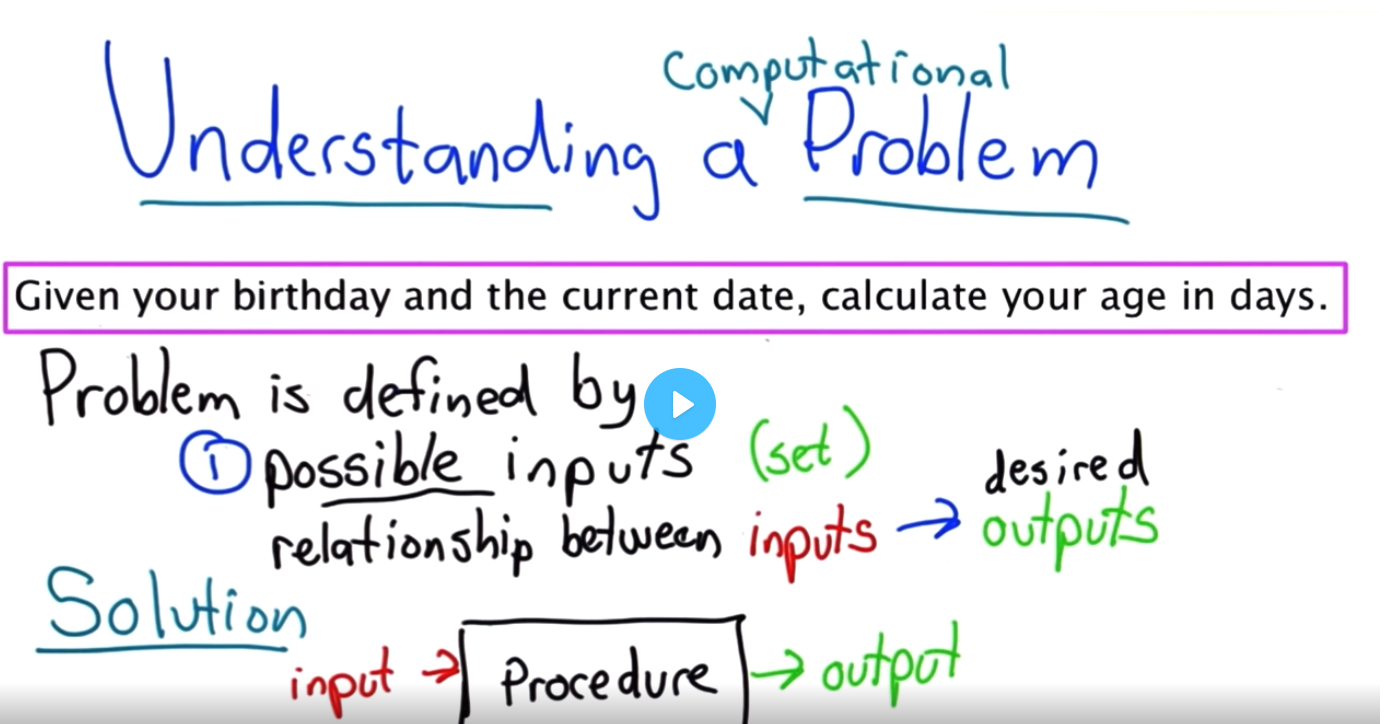 Computational
Understanding a Problem
Given your birthday and the current date, calculate your age in days.
Problem is defined by
① possible inputs (set)
desired
relationship between inputs → outputs
Solution
input → Procedure → output